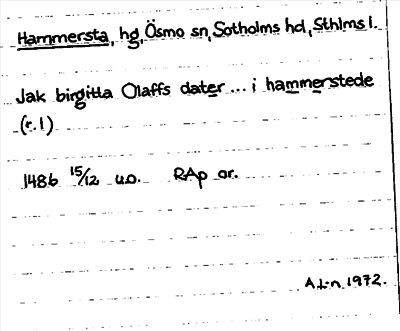 Hammersta, hg, Ösmo sn, Sotholms hd, Sthlms l.
Jak birgitta Olaffs dater ... i hammerstede
(r. 1)
1486 15/12 u.o. RAp or.
A.L-n 1972.